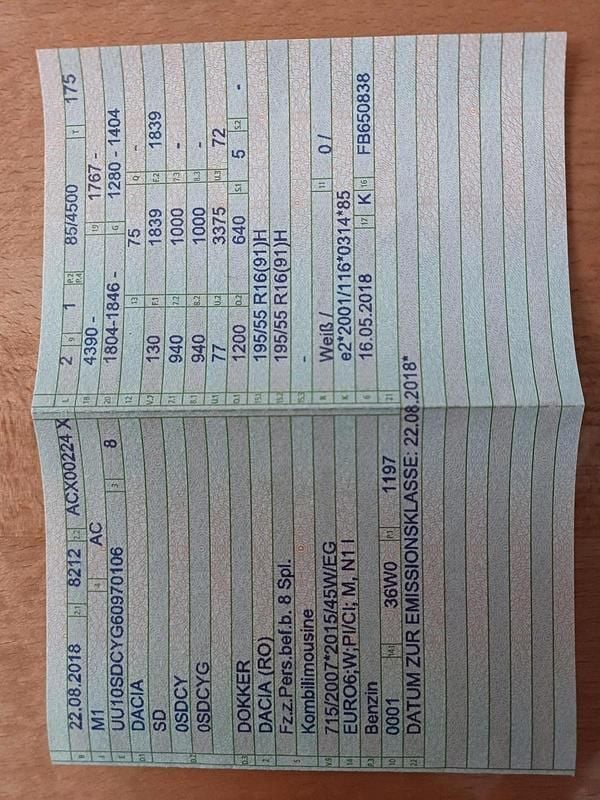 B 22.08.2018 2.1 8212 2.2 ACX00224 X
J M1 4 AC
E UU10SDCYG60970106 3 8
D.1 DACIA
SD
0SDCY
D.2 0SDCYG
D.3 DOKKER
2 DACIA (RO)
5 Fz.z.Pers.bef.b. 8 Spl.
Kombilimousine
V.9 715/2007*2015/45W/EG
14 EURO6;W;PI/CI; M, N1 I
P.3 Benzin
10 0001 14.1 36W0 P.1 1197
22 DATUM ZUR EMISSIONSKLASSE: 22.08.2018*
L 2 9 1 P.2 P.4 85/4500 T 175
18 4390 - 19 1767 -
20 1804-1846 - G 1280 - 1404
12 13 75 Q -
V.7 130 F.1 1839 F.2 1839
7.1 940 7.2 1000 7.3 -
8.1 940 8.2 1000 8.3 -
U.1 77 U.2 3375 U.3 72
O.1 1200 O.2 640 S.1 5 S.2 -
15.1 195/55 R16(91)H
15.2 195/55 R16(91)H
15.3 -
R Weiß / 11 0 /
K e2*2001/116*0314*85
6 16.05.2018 17 K 16 FB650838
21